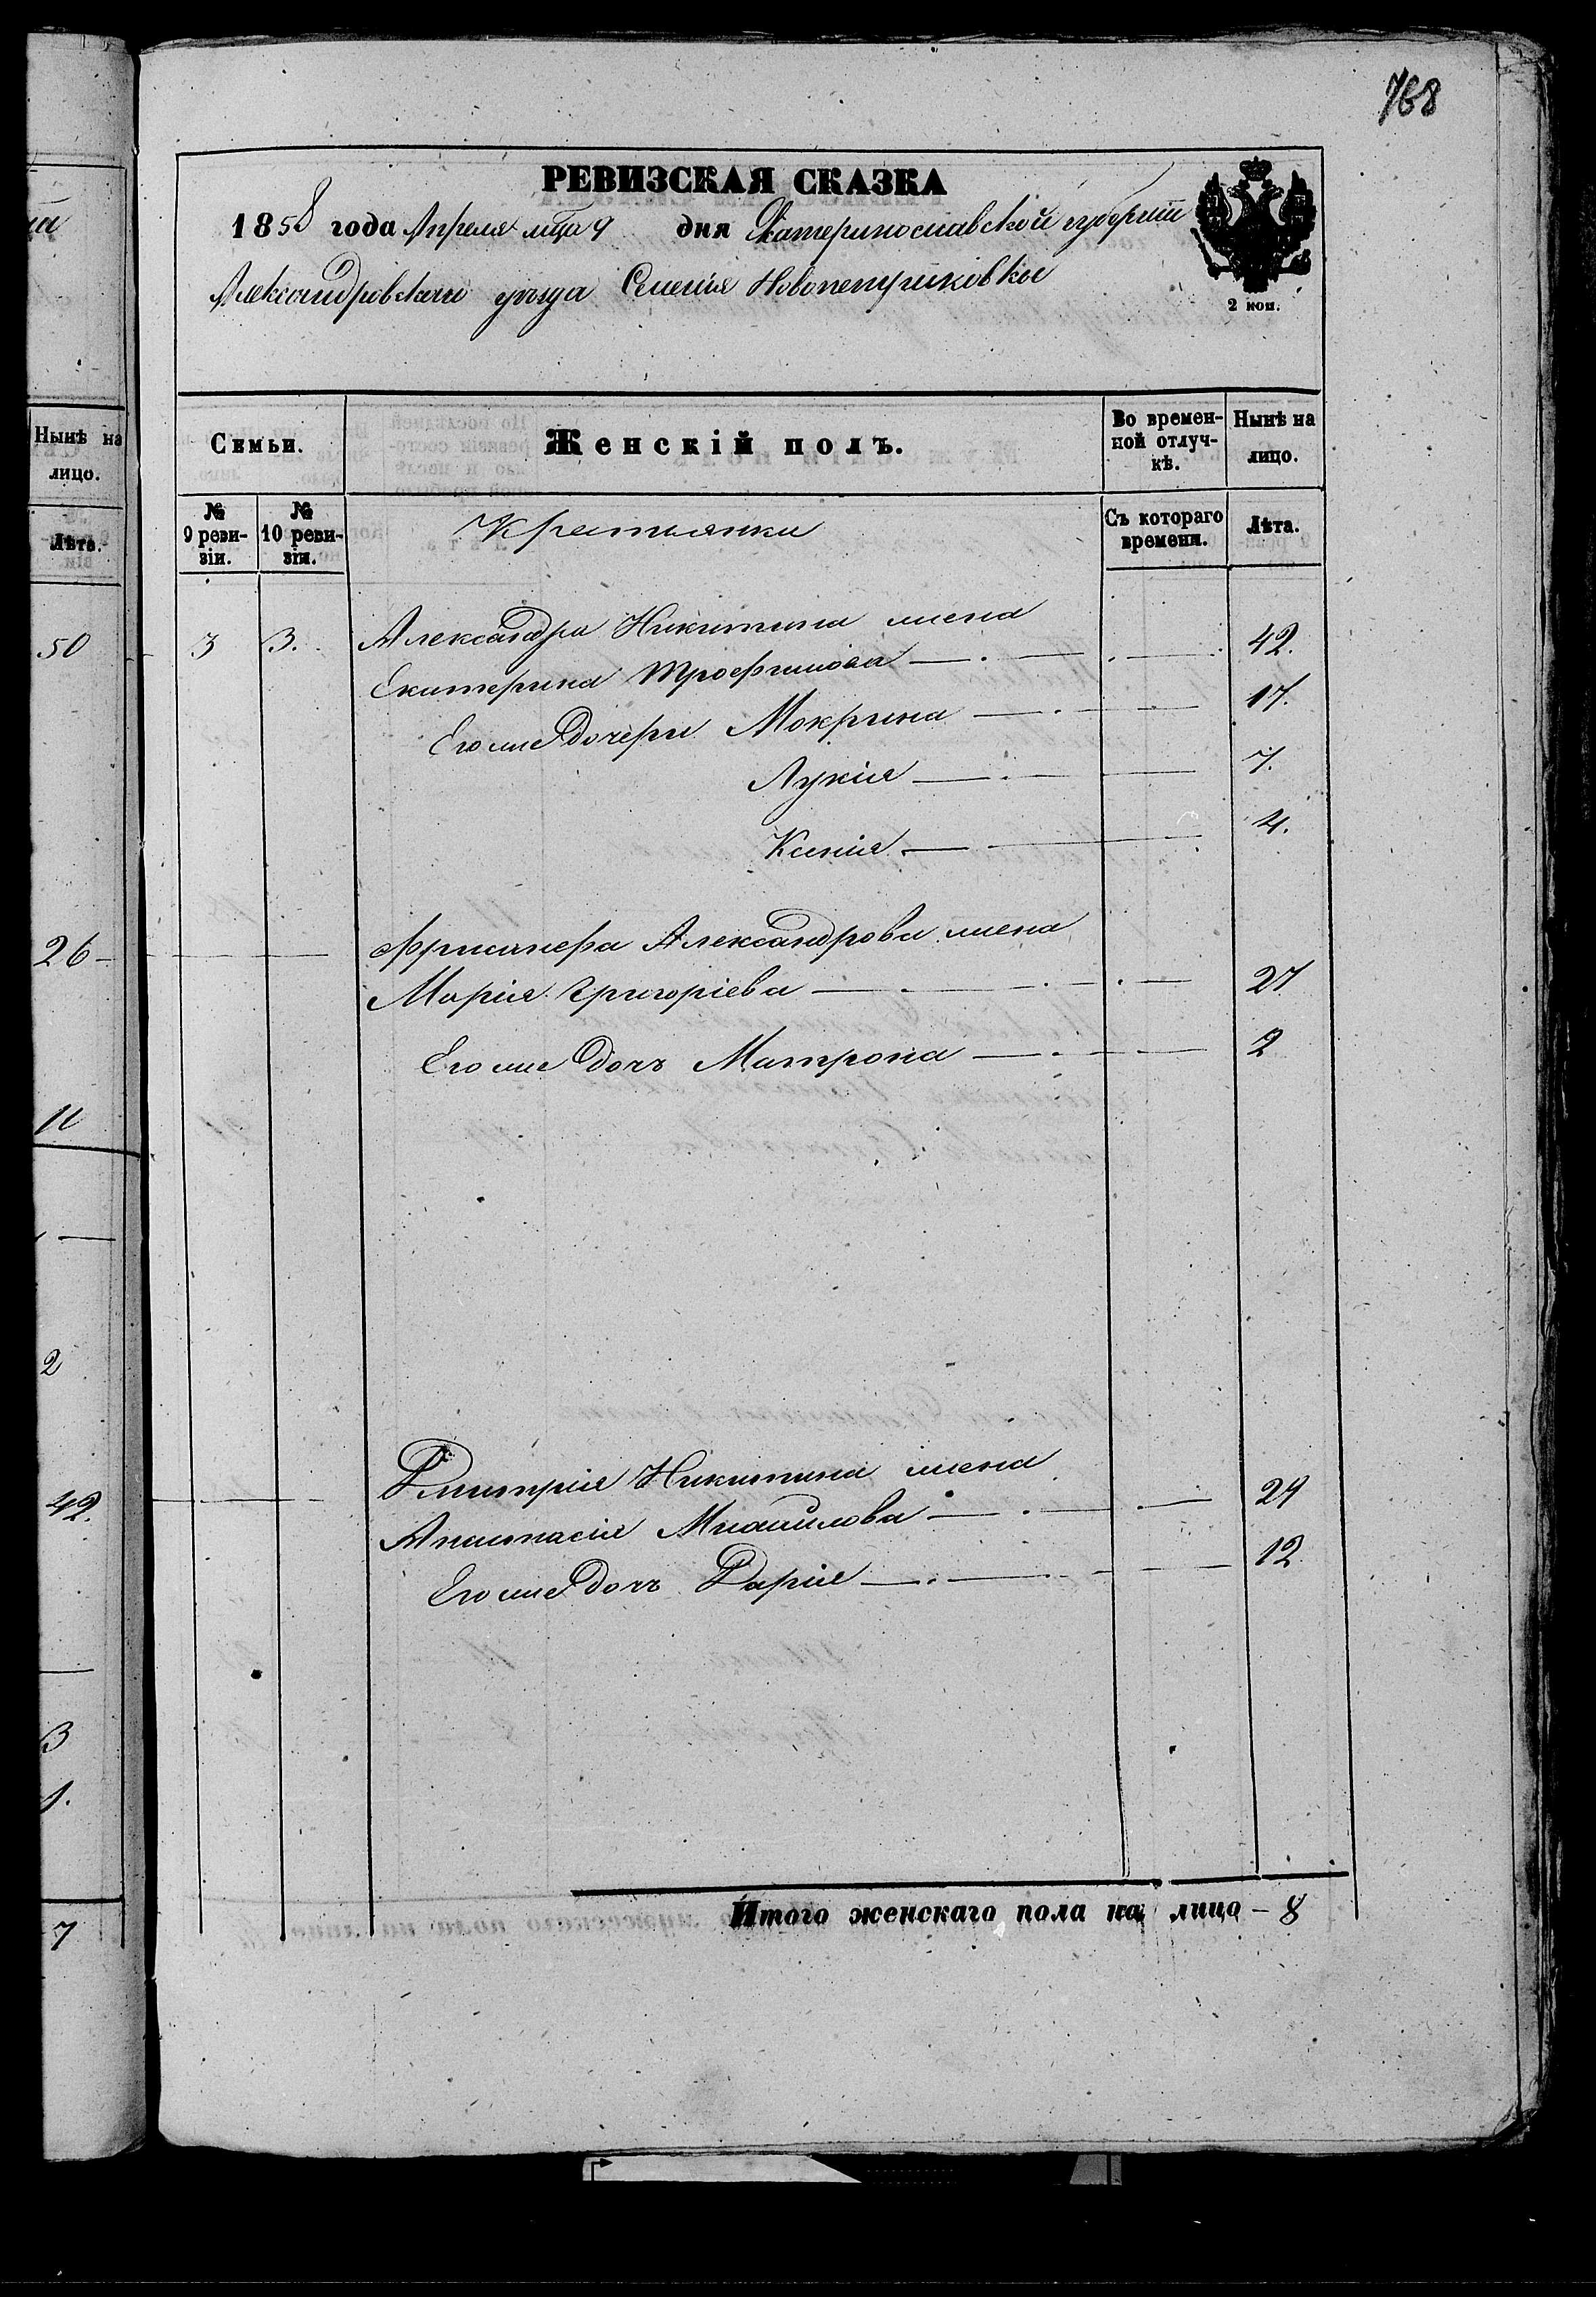 768
РЕВИЗСКАЯ СКАЗКА
1858 года Апреля мца 9 дня Екатеринославской губерніи
Александровскаго уѣзда Селенія
2 коп.
Нынѣ на лицо.
Лѣта.
50
26
11
2
42.
3
1.
7
Семьи.
Женскій полъ.
Во времен-
ной отлуч-
кѣ.
Нынѣ на
лицо.
№
9 реви-
зіи.
№
10 реви-
зіи.
Крестьянки
Съ котораго
времени.
Лѣта.
3 3. Александра Никитина жена
Екатерина Трофимова 42.
Его же дочери Мокрина 17.
Лукія 7.
Ксенія 4.
Александрова жена
Марія Григоріева 27
Его же дочь Матрона 2
Дмитрія Никитина жена
Анастасія Михайлова 29
Его же дочь Дарія 12
Итого женскаго пола на лицо – 8